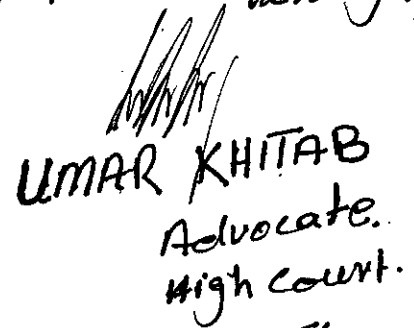 UMAR KHITAB
Advocate.
High Court.